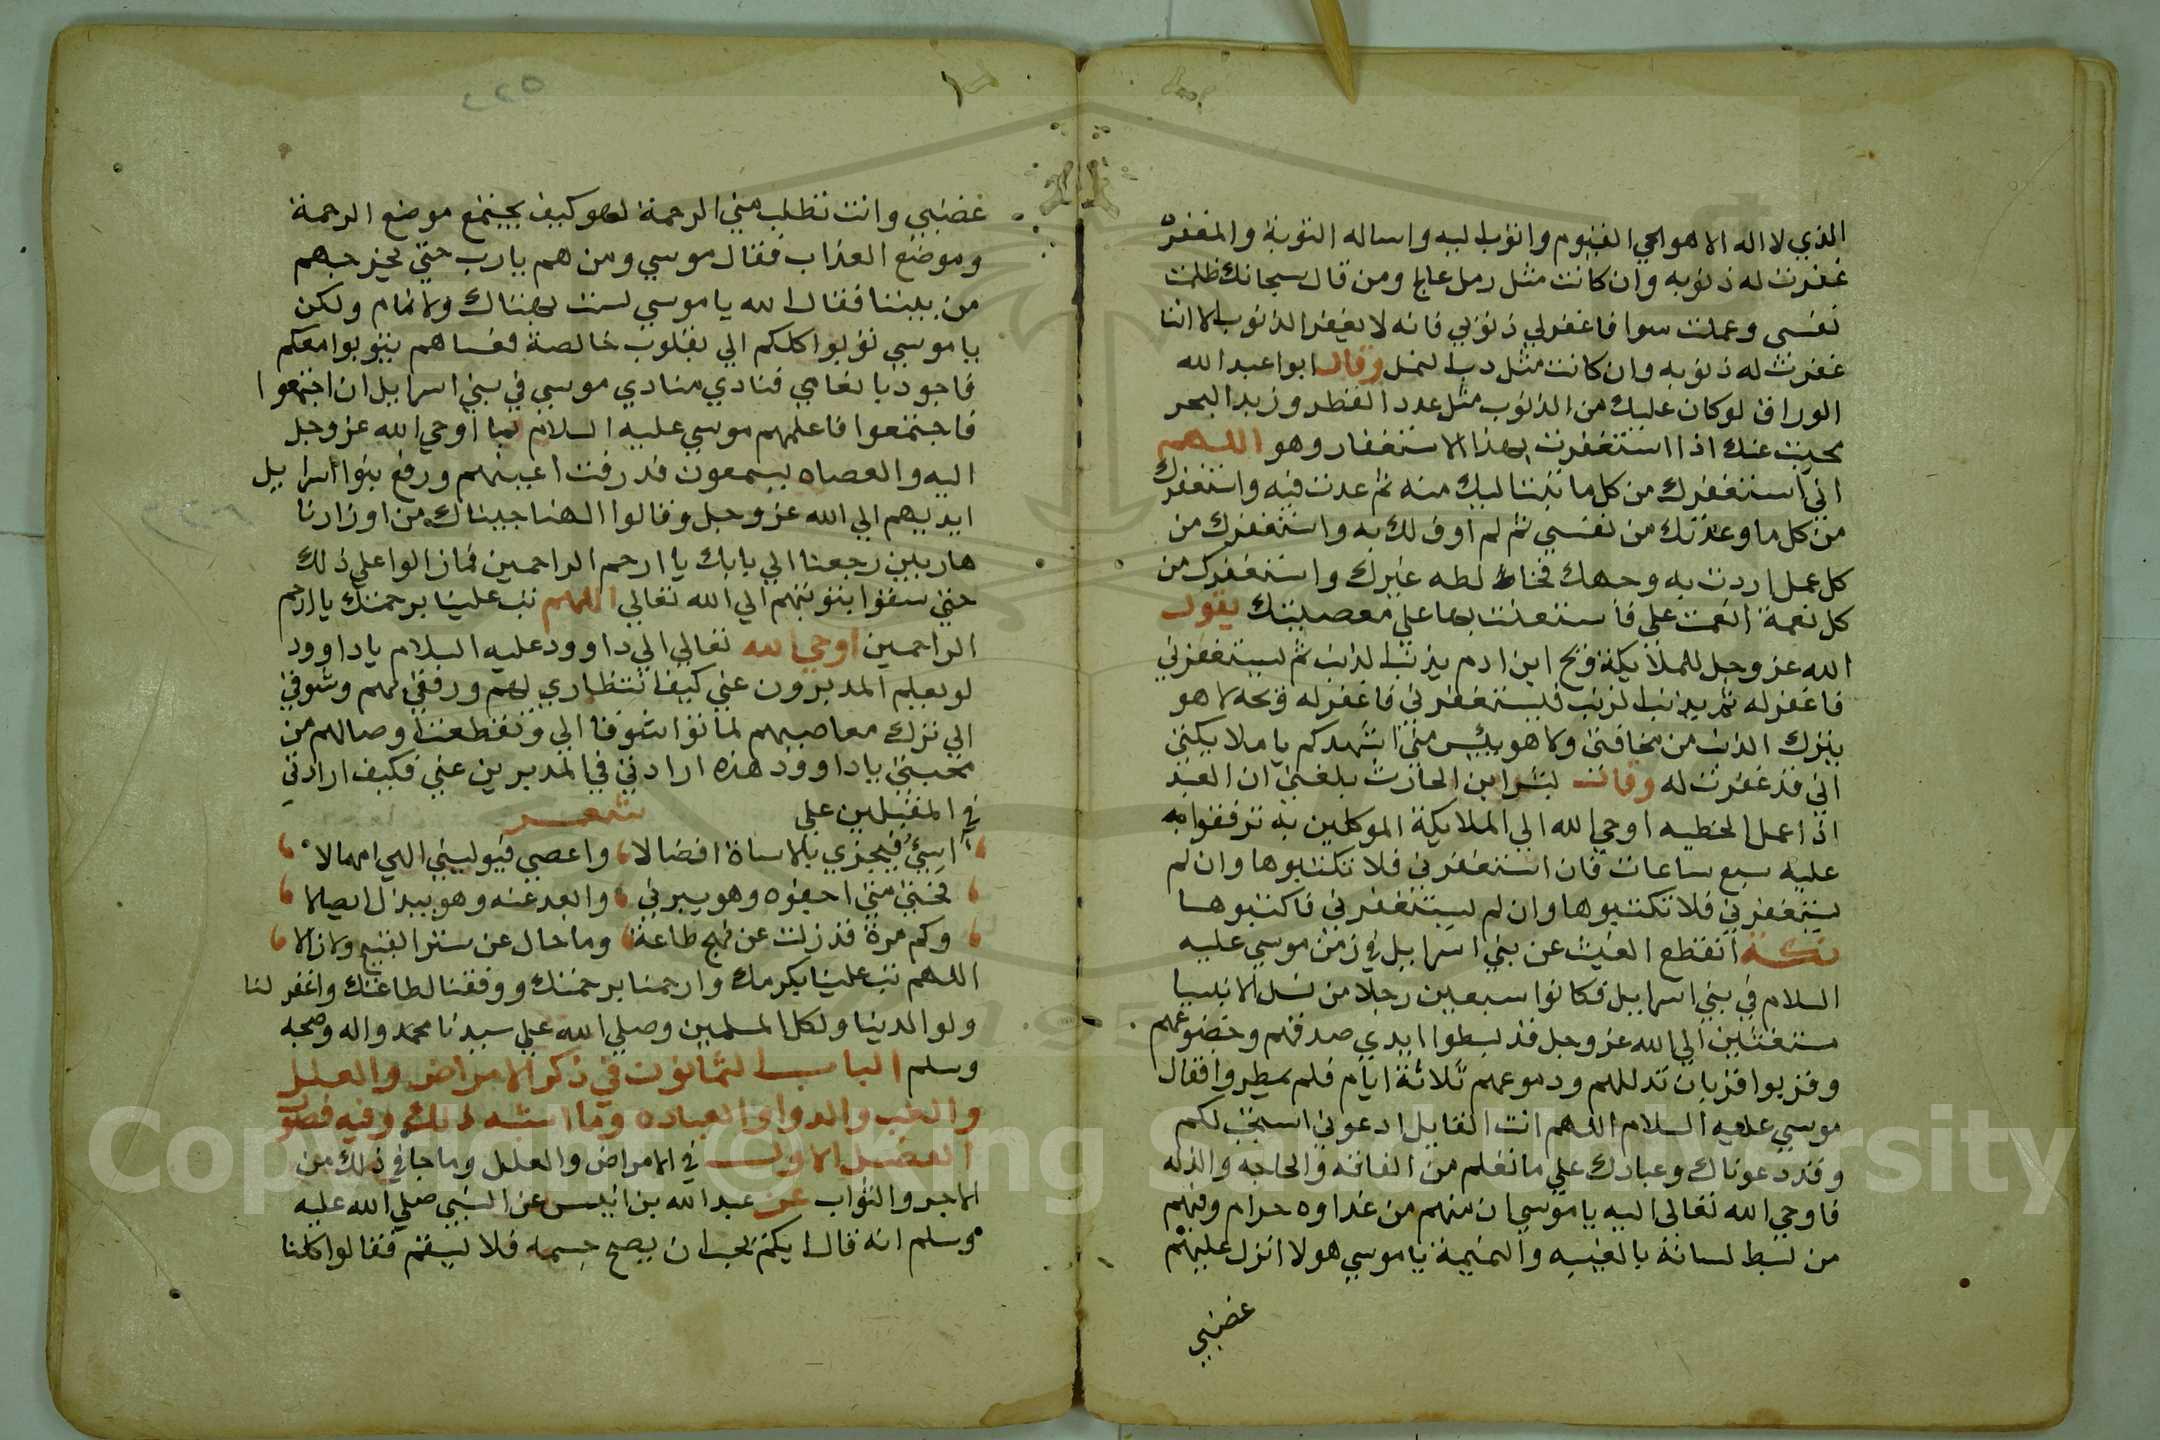 الذي لا اله الا هو الحي القيوم واتوب اليه واساله التوبة والمغفره
غفرت له ذنوبه وان كانت مثل رمل عالج ومن قال سبحانك ظلمت
نفسى وعملت سوا فاغفرلي ذنوبي فانه لا يغفر الذنوب الا انت
غفرت له ذنوبه وان كانت مثل دب النمل وقال ابوا عبد الله
الوراق لو كان عليك من الذنوب مثل عدد القطر وزبد البحر
محيت عنك اذا استغفرت بهذا الاستغفار وهو اللهم
اني استغفرك من كل ما تبت اليك منه ثم عدت فيه واستغفرك
من كل ما وعدتك من نفسي ثم لم اوف لك به واستغفرك من
كل عمل اردت به وجهك فخالطه غيرك واستغفرك من
كل نعمة انعمت علي فاستعنت بها علي معصيتك يقول
الله عز وجل للملايكة ويح ابن ادم يذنب الذنب ثم يستغفرني
فاغفر له ثم يذنب الذنب فيستغفرني فاغفر له ويحه لا هو
يترك الذنب من مخافتي ولا هو يئس مني اشهدكم يا ملايكتي
اني قد غفرت له وقالت بشر ابن الحارث بلغني ان العبد
اذا عمل الخطيه اوحي الله الي الملايكة الموكلين به ترفقوا به
عليه سبع ساعات فان استغفرني فلا تكتبوها وان لم
يستغفرني فلا تكتبوها وان لم يستغفرني فاكتبوها
نكتة انقطع الغيث عن بني اسراييل في زمن موسي عليه
السلام في بني اسراييل فكانوا سبعين رجلا من نسل الانبيا
مستغثين الي الله عز وجل قد بسطوا ايدي صدقهم وخضوعهم
وقربوا قربان تذللهم ودموعهم ثلاثة ايام فلم يمطروا فقال
موسي عليه السلام اللهم انت القايل ادعوني استجب لكم
وقد دعوناك وعبادك علي ما تعلم من الفاقه والحاجه والذله
فاوحي الله تعالى اليه يا موسي ان منهم من غذاوه حرام ومنهم
من بسط لسانه بالغيبه والنميمة يا موسي هولا انزل عليهم
غضبي
غضبي وانت تطلب مني الرحمة لهم وكيف يجتمع موضع الرحمة
وموضع العذاب فقال موسي ومن هم يا رب حتي نخرجهم
من بيننا فقال الله يا موسي لست بهتاك ولا نمام ولكن
يا موسي توبوا كلكم الي بقلوب خالصة فعساهم يتوبوا معكم
فاجود بانعامي فنادي منادي موسي في بني اسراييل ان اجتمعوا
فاجتمعوا فاعلمهم موسي عليه السلام بما اوحي الله عز وجل
اليه والعصاه يسمعون فذرفت اعينهم ورفع بنوا اسراييل
ايديهم الي الله عز وجل وقالوا الهنا جيناك من اوزارنا
هاربين رجعنا الي بابك يا ارحم الراحمين فما زالوا علي ذلك
حتي سقوا بتوبتهم الي الله تعالي اللهم تب علينا برحمتك يا ارحم
الراحمين اوحي الله تعالي الي داوود عليه السلام يا داوود
لو يعلم المدبرون عني كيف انتظاري لهم ورفقي بهم وشوقي
الي ترك معاصيهم لماتوا شوقا الي وتقطعت اوصالهم من
محبتي يا داوود هذه ارادتي في المدبرين عني فكيف ارادتي
في المقبلين علي شعر
اسئ فيجزي بالاساة افضالا واعصي فيوليني الهي امهالا
فحتي متي اجفوه وهو يبرني وابعد عنه وهو يبذل ايصالا
وكم مرة قد زلت عن نهج طاعة وما حال عن ستر القبيح ولا زالا
اللهم تب علينا بكرمك وارحمنا برحمتك ووفقنا لطاعتك واغفر لنا
ولوالدينا ولكل المسلمين وصلي الله علي سيدنا محمد واله وصحبه
وسلم الباب الثمانون في ذكر الامراض والعلل
والطب والدوا والعياده وما اشبه ذلك وفيه فصول
الفصل الاول في الامراض والعلل وما جا في ذلك من
الاجر والثواب عن عبد الله بن انيس عن النبي صلي الله عليه
وسلم انه قال ايكم يحب ان يصح جسمه فلا يسقم فقالوا كلنا